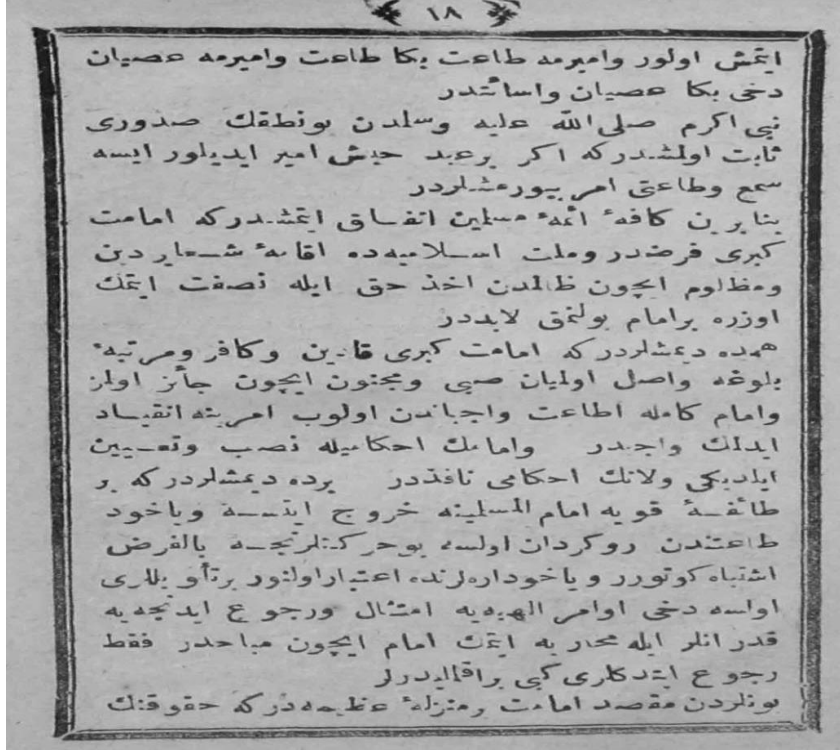 ١٨
ایتمش اولور وامیرمه طاعت بكا طاعت وامیرمه عصیان
دخی بكا عصیان واسائتدر
نبی اكرم صلی الله علیه وسلمدن بونطقك صدوری
ثابت اولمشدركه اكر برعبد حبش امیر ایدیلور ایسه
سمع وطاعتی امر بیورمشلردر
بنابرین كافهٔ ائمهٔ مسلمین اتفاق ایتمشدركه امامت
كبری فرضدر وملت اسلامیه‌ده اقامهٔ شعایر دین
ومظلوم ایچون ظالمدن اخذ حق ایله نصفت ایتمك
اوزره برامام بولنمق لابددر
همده دیمشلردركه امامت كبری قادین وكافر ومرتبهٔ
بلوغه واصل اولمیان صبی ومجنون ایچون جائز اولمز
وامام كامله اطاعت واجباتدن اولوب امرینه انقیاد
ایدلمك واجبدر وامامك احكامیله نصب وتعیین
ایلدیكی ولاتك احكامی نافذدر برده دیمشلردركه بر
طائفهٔ قویه امام المسلمینه خروج ایتسه ویاخود
طاعتندن روكردان اولسه بوحركتلرنجه بالفرض
اشتباه كوتورر ویاخود اره‌لرنده اعتبار اولنور برتأویللری
اولسه دخی اوامر الهیه‌یه امتثال ورجوع ایدنجه‌یه
قدر انلر ایله محاربه ایتمك امام ایچون مباحدر فقط
رجوع ایتدكلری كبی براقملیدرلر
بونلردن مقصد امامت رمنزلهٔ عظیمه‌دركه حقوقنك